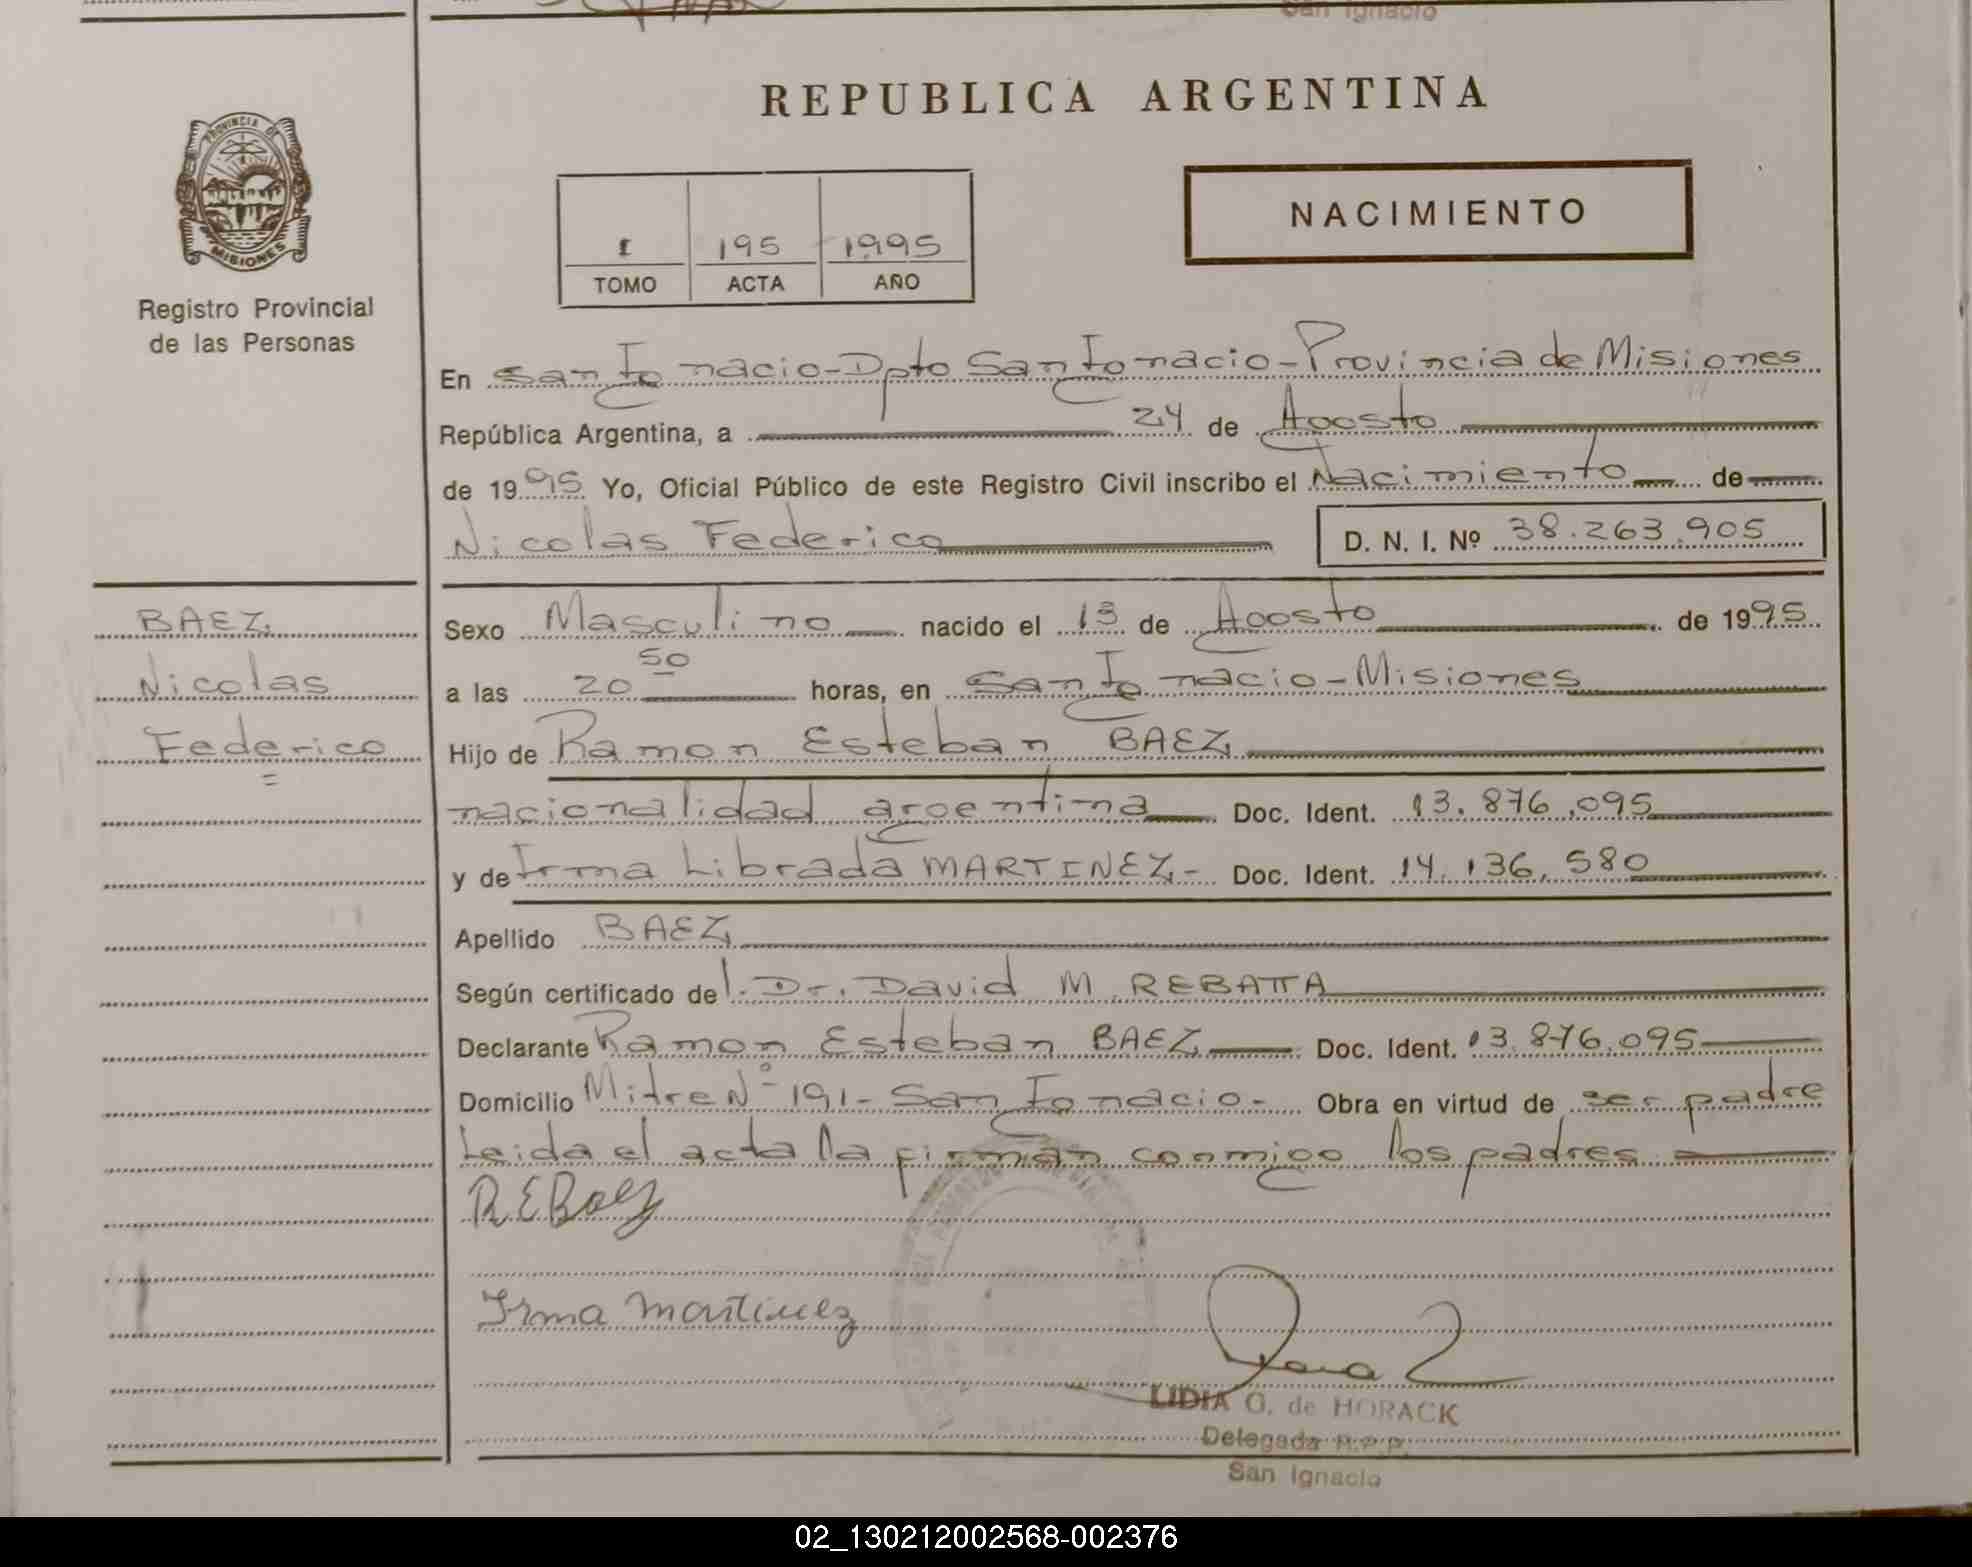 San Ignacio
REPUBLICA ARGENTINA
PROVINCIA DE
MISIONES
Registro Provincial
de las Personas
NACIMIENTO
I 195 1995
TOMO ACTA AÑO
En San Ignacio-Dpto San Ignacio-Provincia de Misiones
República Argentina, a 24 de Agosto
de 1995 Yo, Oficial Público de este Registro Civil inscribo el Nacimiento de
Nicolas Federico D. N. I. Nº 38.263.905
BAEZ
Nicolas
Federico
Sexo Masculino nacido el 13 de Agosto de 1995
a las 20 50 horas, en San Ignacio-Misiones
Hijo de Ramon Esteban BAEZ
nacionalidad argentina Doc. Ident. 13.876.095
y de Irma Librada MARTINEZ- Doc. Ident. 14.136.580
Apellido BAEZ
Según certificado del Dr. David M. REBATTA
Declarante Ramon Esteban BAEZ Doc. Ident. 13.876.095
Domicilio Mitre Nº 191- San Ignacio- Obra en virtud de ser padre
Leida el acta la firman conmigo los padres
R.E.Baez
Irma Martinez
LIDIA G. de HORACK
Delegada R.P.P.
San Ignacio
02_130212002568-002376